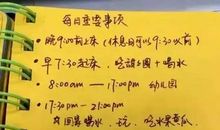 每日重要事项
• 晚9:00前上床（休息日可以9:30以前）
• 早7:30起床，吃 + 喝水
• 8:00am —— 17:00pm 幼儿园
• 17:30pm — 21:00pm
回家喝水，玩，吃水果黄瓜